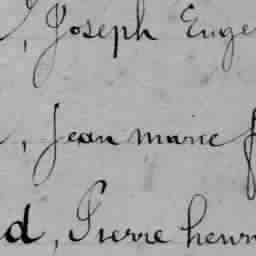 , Joseph Euge
, Jean marie f
d, Pierre henri